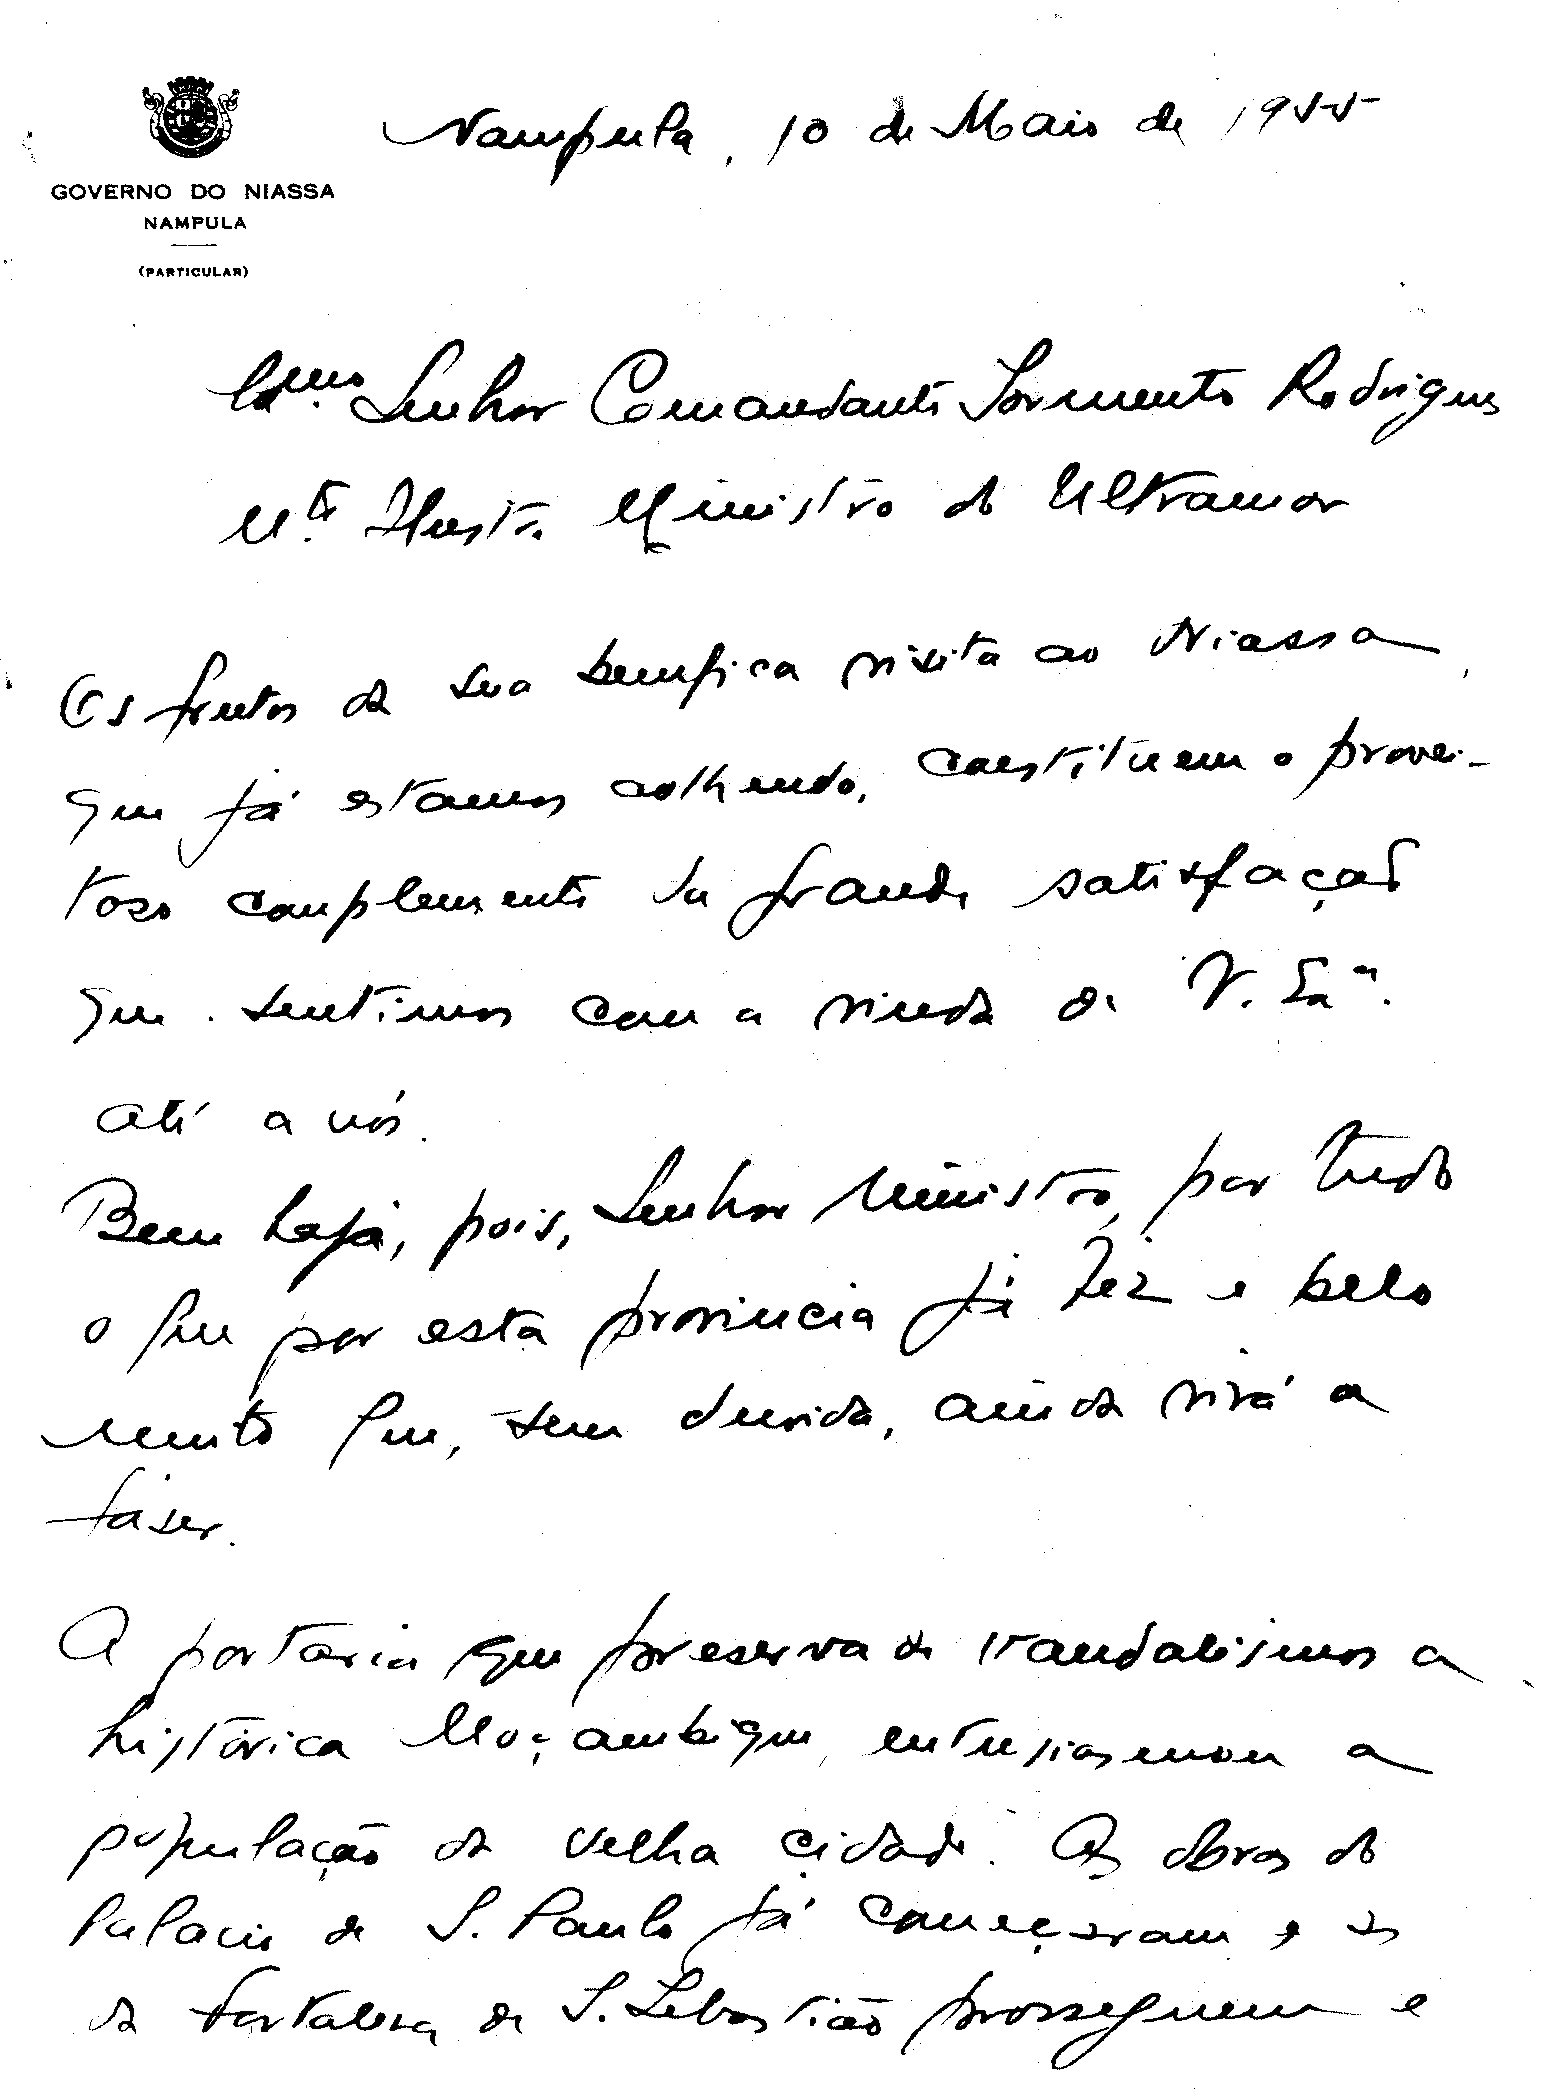 GOVERNO DO NIASSA
NAMPULA
(PARTICULAR)
Nampula, 10 de Maio de 1955
Exmo. Senhor Comandante Sarmento Rodrigues
Mto. Ilustre Ministro do Ultramar
Os frutos da sua benefica visita ao Niassa,
que já estamos colhendo, constituem o provei-
toso complemento da grande satisfação
que sentimos com a vinda de V. Exa.
até a nós.
Bem haja, pois, Senhor Ministro, por tudo
o que por esta provincia já fez e pelo
muito que, sem duvida, ainda virá a
fazer.
A portaria que preserva de vandalismos a
histórica Moçambique, entusiasmou a
população da velha cidade. As obras do
Palacio de S. Paulo já começaram e as
da fortaleza de S. Sebastião prosseguem e